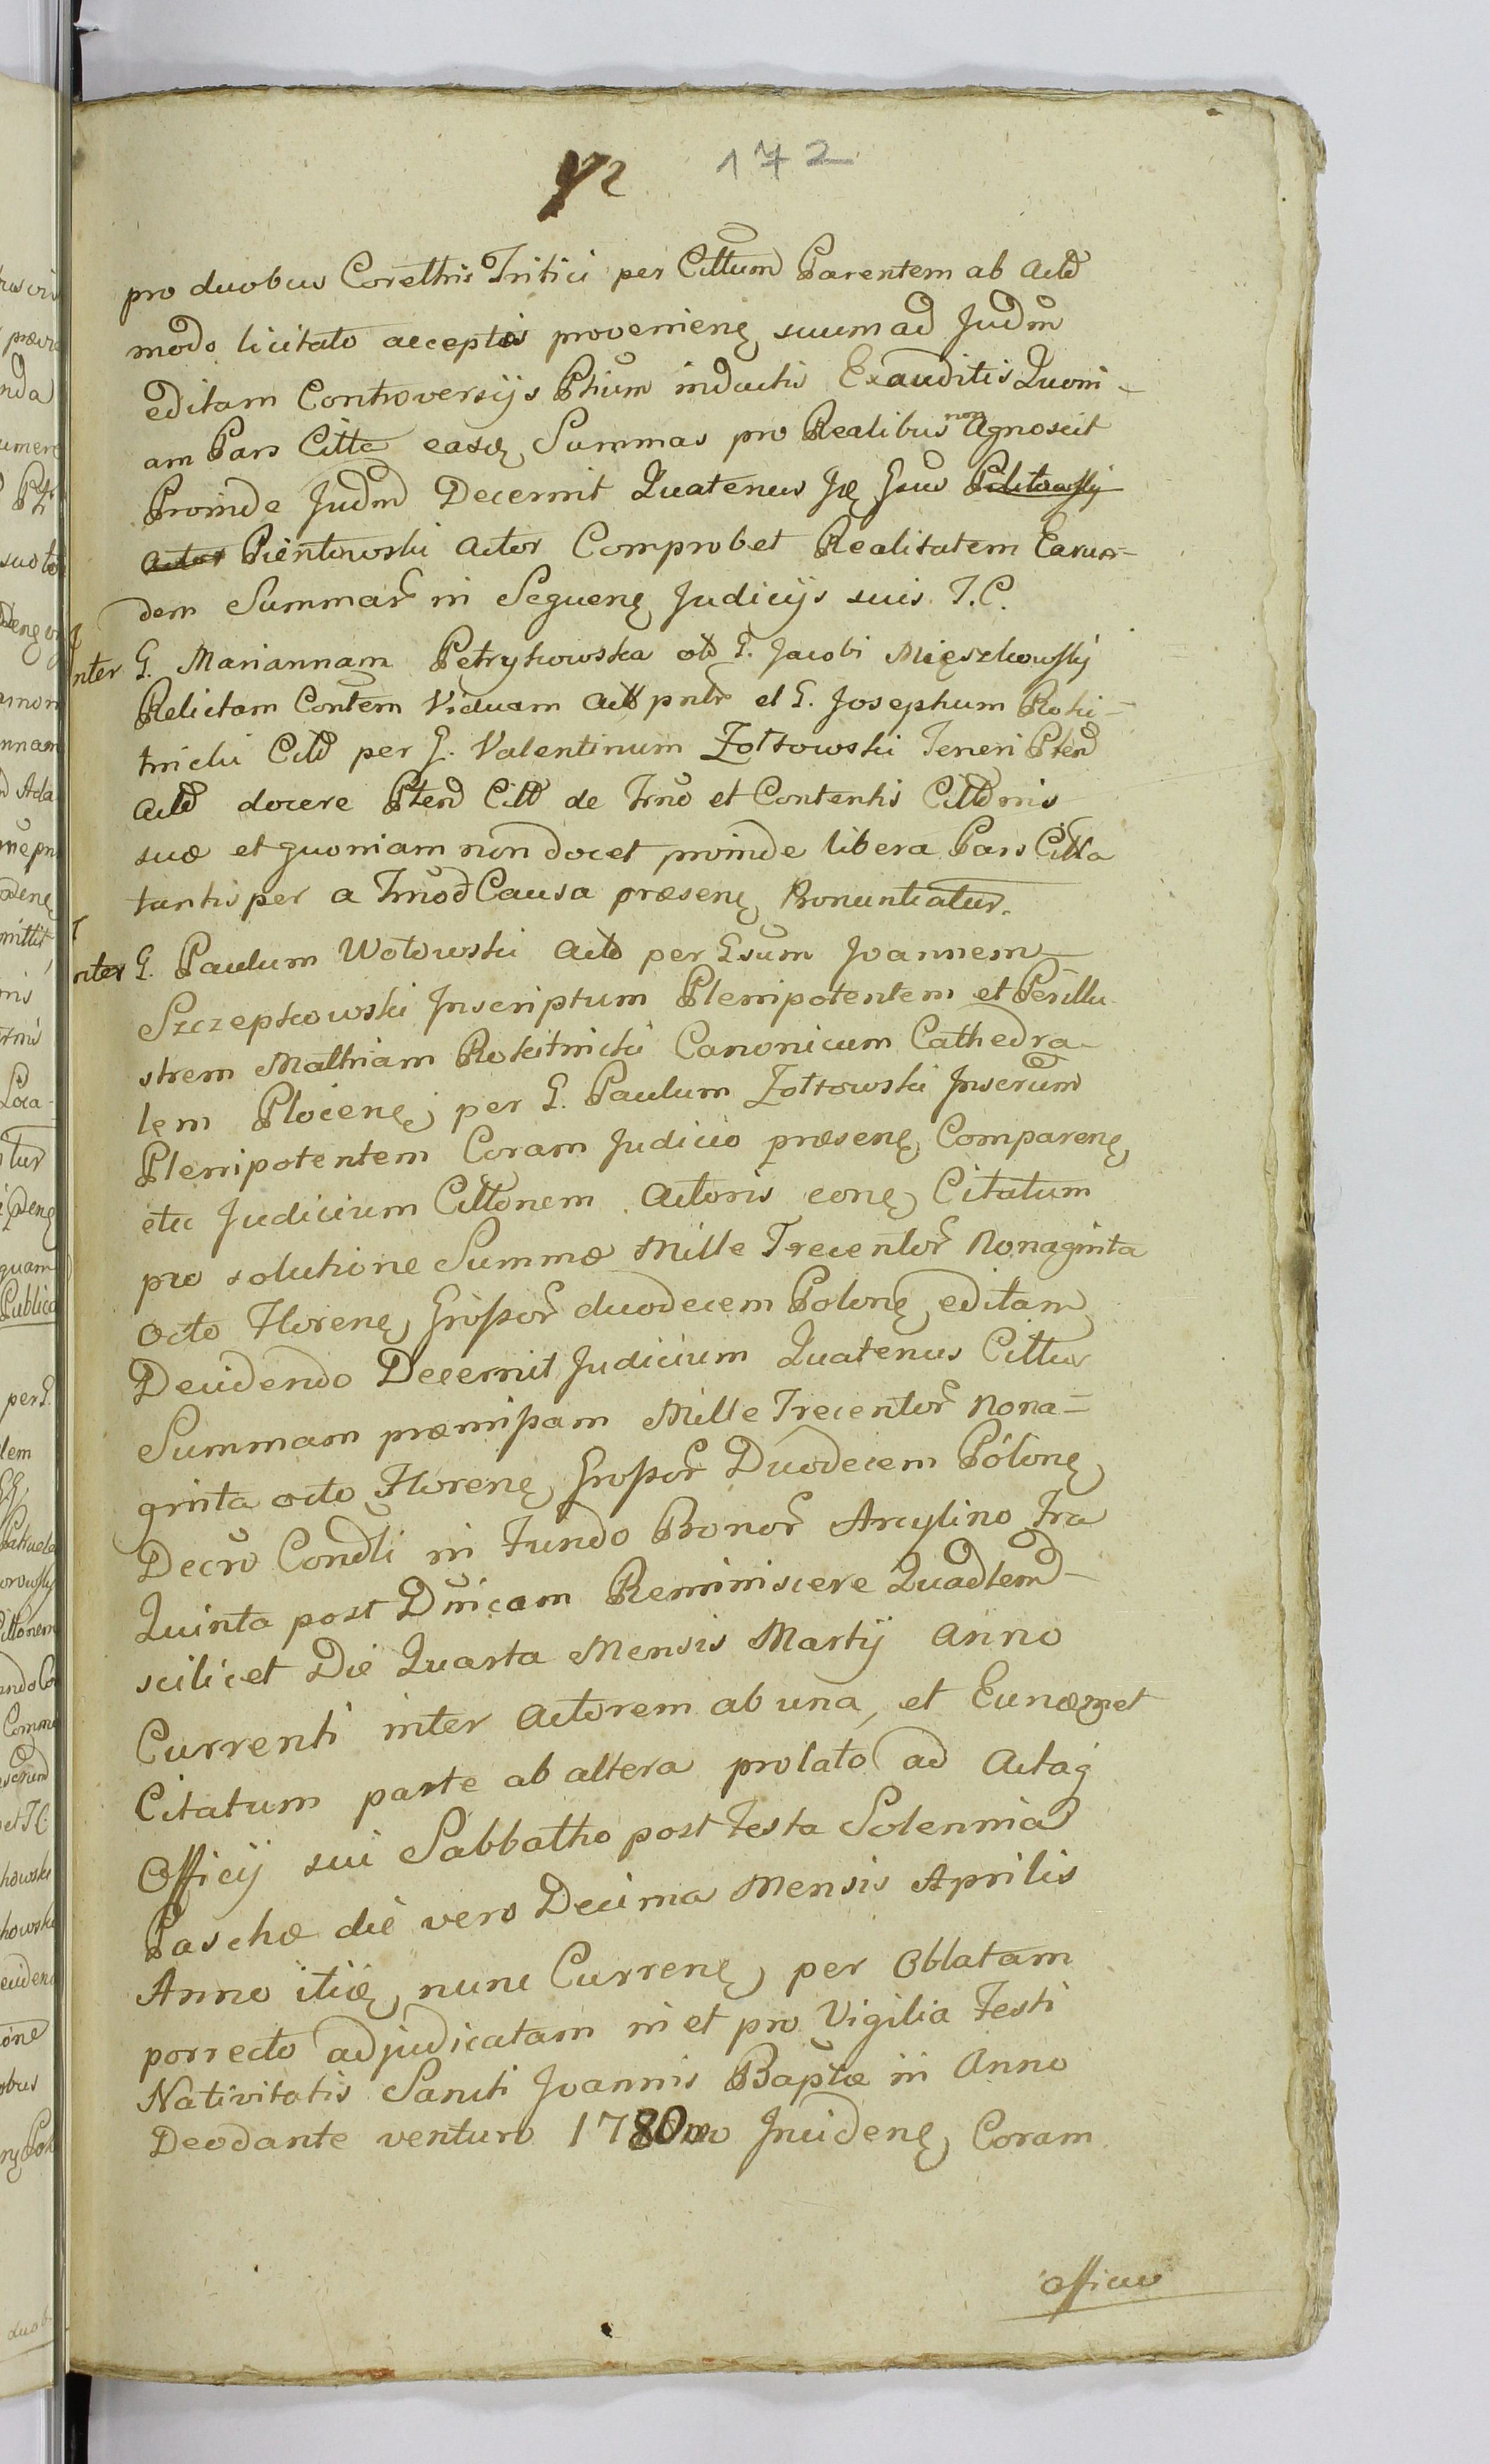 172
pro duobus Corethis Tritici per Cittum Parentem ab Actd
modo licitato acceptis provenieng suum ad Judm
editam Controversijs Ptium inductis Exauditis Quoni-
am Pars Citta easq Summas pro Realibus non Agnoscit
Proinde Judm Decernit Quatenus
Actor Pientowski Actor Comprobet Realitatem Earun-
dem Summar in Sequeng Judicijs suis. T.C.
Inter G. Mariannam Petrykowska old G. Jacobi Mięszkowskj
Relictam Contem Viduam Act pntr et G. Josephum Roki-
tnicki Citd per G. Valentinum Zołtowski Teneri Pterd
Actd docere Pterd Citd de Trno et Contentis Cittdnis
suæ et quoniam non docet proinde libera Pars Citta
tantisper a Trnod Causa præseng Pronuntiatur.
Inter G. Paulum Wołowski Actd per Gsum Joannem
Szczepkowski Inscriptum Plenipotentem et Perillu-
strem Mathiam Rokitnicki Canonicum Cathedra-
lem Ploceng per G. Paulum Zołtowski Inserum
Plenipotentem Coram Judicio præseng Compareng
etu Judicium Cittonem Actoris eong Citatum
pro solutione Summæ Mille Trecentor Nonaginta
octo Floreng Grossor duodecem Polong editam
Decidendo Decernit Judicium Quatenus Cittus
Summam præmissam Mille Trecentor Nona=
ginta octo Floreng Grossor Duodecem Polong
Decro Condli in Fundo Bonor Arcylino Fra
Quinta post Dnicam Reminiscere Quadtemd
scilicet Die Quarta Mensis Martij Anno
Currenti inter Actorem ab una, et Eunæmet
Citatum parte ab altera prolato ad Actaq
Officij sui Sabbatho post Festa Solennia
Paschæ die vero Decima Mensis Aprilis
Anno itiæ nunc Curreng per Oblatam
porrecto adjudicatam in et pro Vigilia Festi
Nativitatis Sancti Joannis Baptæ in Anno
Deodante venturo 1780mo Incideng Coram
officio